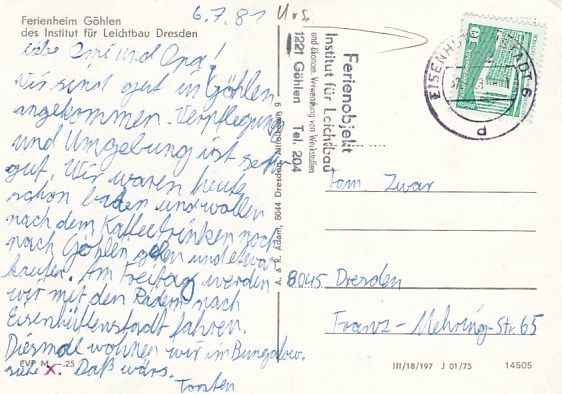 Ferienheim Göhlen
des Institut für Leichtbau Dresden
6.7.81
Liebe Omi und Opa!
Wir sind gut in Göhlen
angekommen. Verpflegung
und Umgebung ist sehr
gut. Wir waren heute
schon baden und wollen
nach dem Kaffeetrinken noch
nach Göhlen gehen und etwas
kaufen. Am Freitag werden
wir mit den Rädern nach
Eisenhüttenstadt fahren.
Diesmal wohnen wir im Bungalow.
siehe x. Daß wärs.
Torsten
EVP M -.25
A. & R. Adam, 8044 Dresden
Ferienobjekt
Institut für Leichtbau
und ökonom. Verwendung von Werkstoffen
1221 Göhlen Tel. 204
EISENHÜTTENSTADT 6
d
Fam. Zwar
8045 Dresden
Franz-Mehring-Str. 65
III/18/197 J 01/75 14505